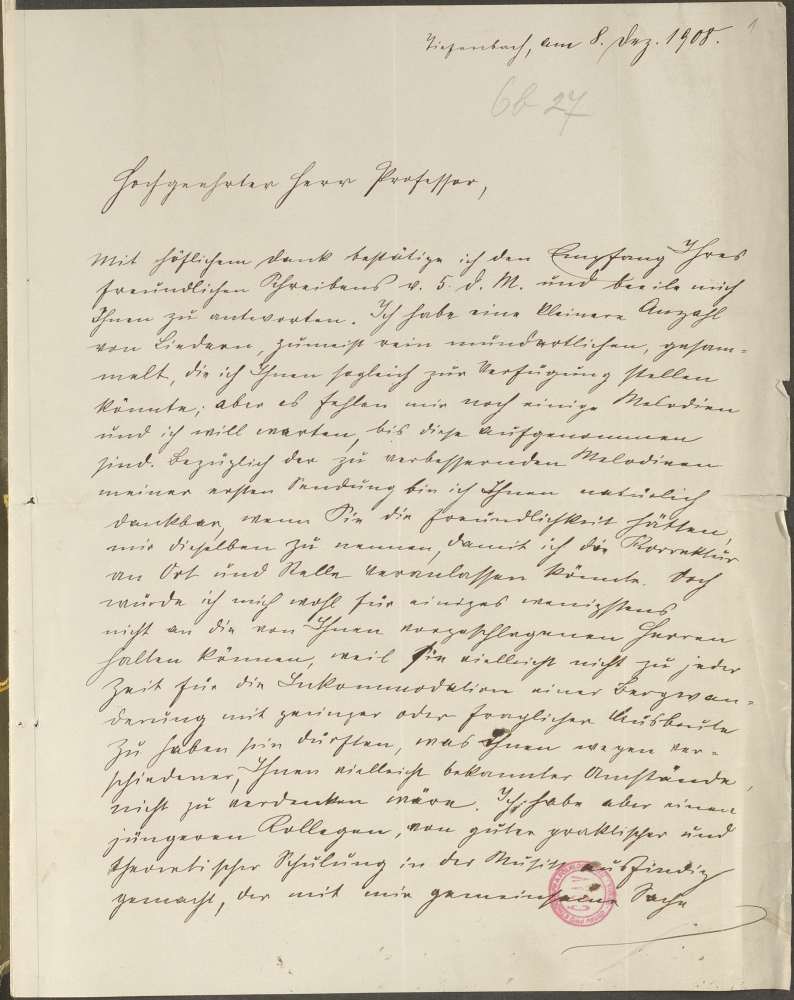 1
Tiefenbach, am 8. Dez. 1908.
Gb 27
Hochgeehrter Herr Professor,
Mit höflichem Dank bestätige ich den Empfang Ihres
freundlichen Schreibens v. 5. d. M. und beeile mich
Ihnen zu antworten. Ich habe eine kleinere Anzahl
von Liedern, zumeist rein mundartlichen, gesam-
melt, die ich Ihnen sogleich zur Verfügung stellen
könnte; aber es fehlen mir noch einige Melodien
und ich will warten, bis diese aufgenommen
sind. Bezüglich der zu verbessernden Melodieen
meiner ersten Sendung bin ich Ihnen natürlich
dankbar, wenn Sie die Freundlichkeit hätten,
mir dieselben zu nennen, damit ich die Korrektur
an Ort und Stelle veranlassen könnte. Doch
würde ich mich wohl für einiges wenigstens
nicht an die von Ihnen vorgeschlagenen Herren
halten können, weil sie vielleicht nicht zu jeder
Zeit für die Inkommodation einer Bergwan-
derung mit geringer oder fraglicher Ausbeute
zu haben sein dürften, was Ihnen wegen ver-
schiedener, Ihnen vielleicht bekannter Umstände,
nicht zu verdenken wäre. Ich habe aber einen
jüngeren Kollegen, von guter praktischer und
theoretischer Schulung in der Musik ausfindig
gemacht, der mit mir gemeinsame Sache